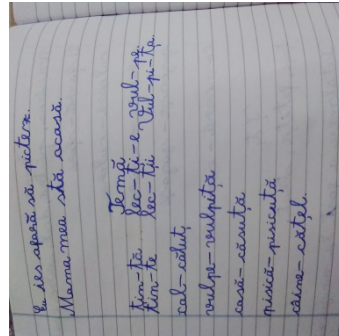 Eu ies afară să pictez.
Mama mea stă acasă.
Temă
țin-tă lec-ți-e vul-pe
țin-te lec-ții vul-pi-ța
cal-căluț
vulpe-vulpiță
casă-căsuță
pisică-pisicuță
câine-cățel.